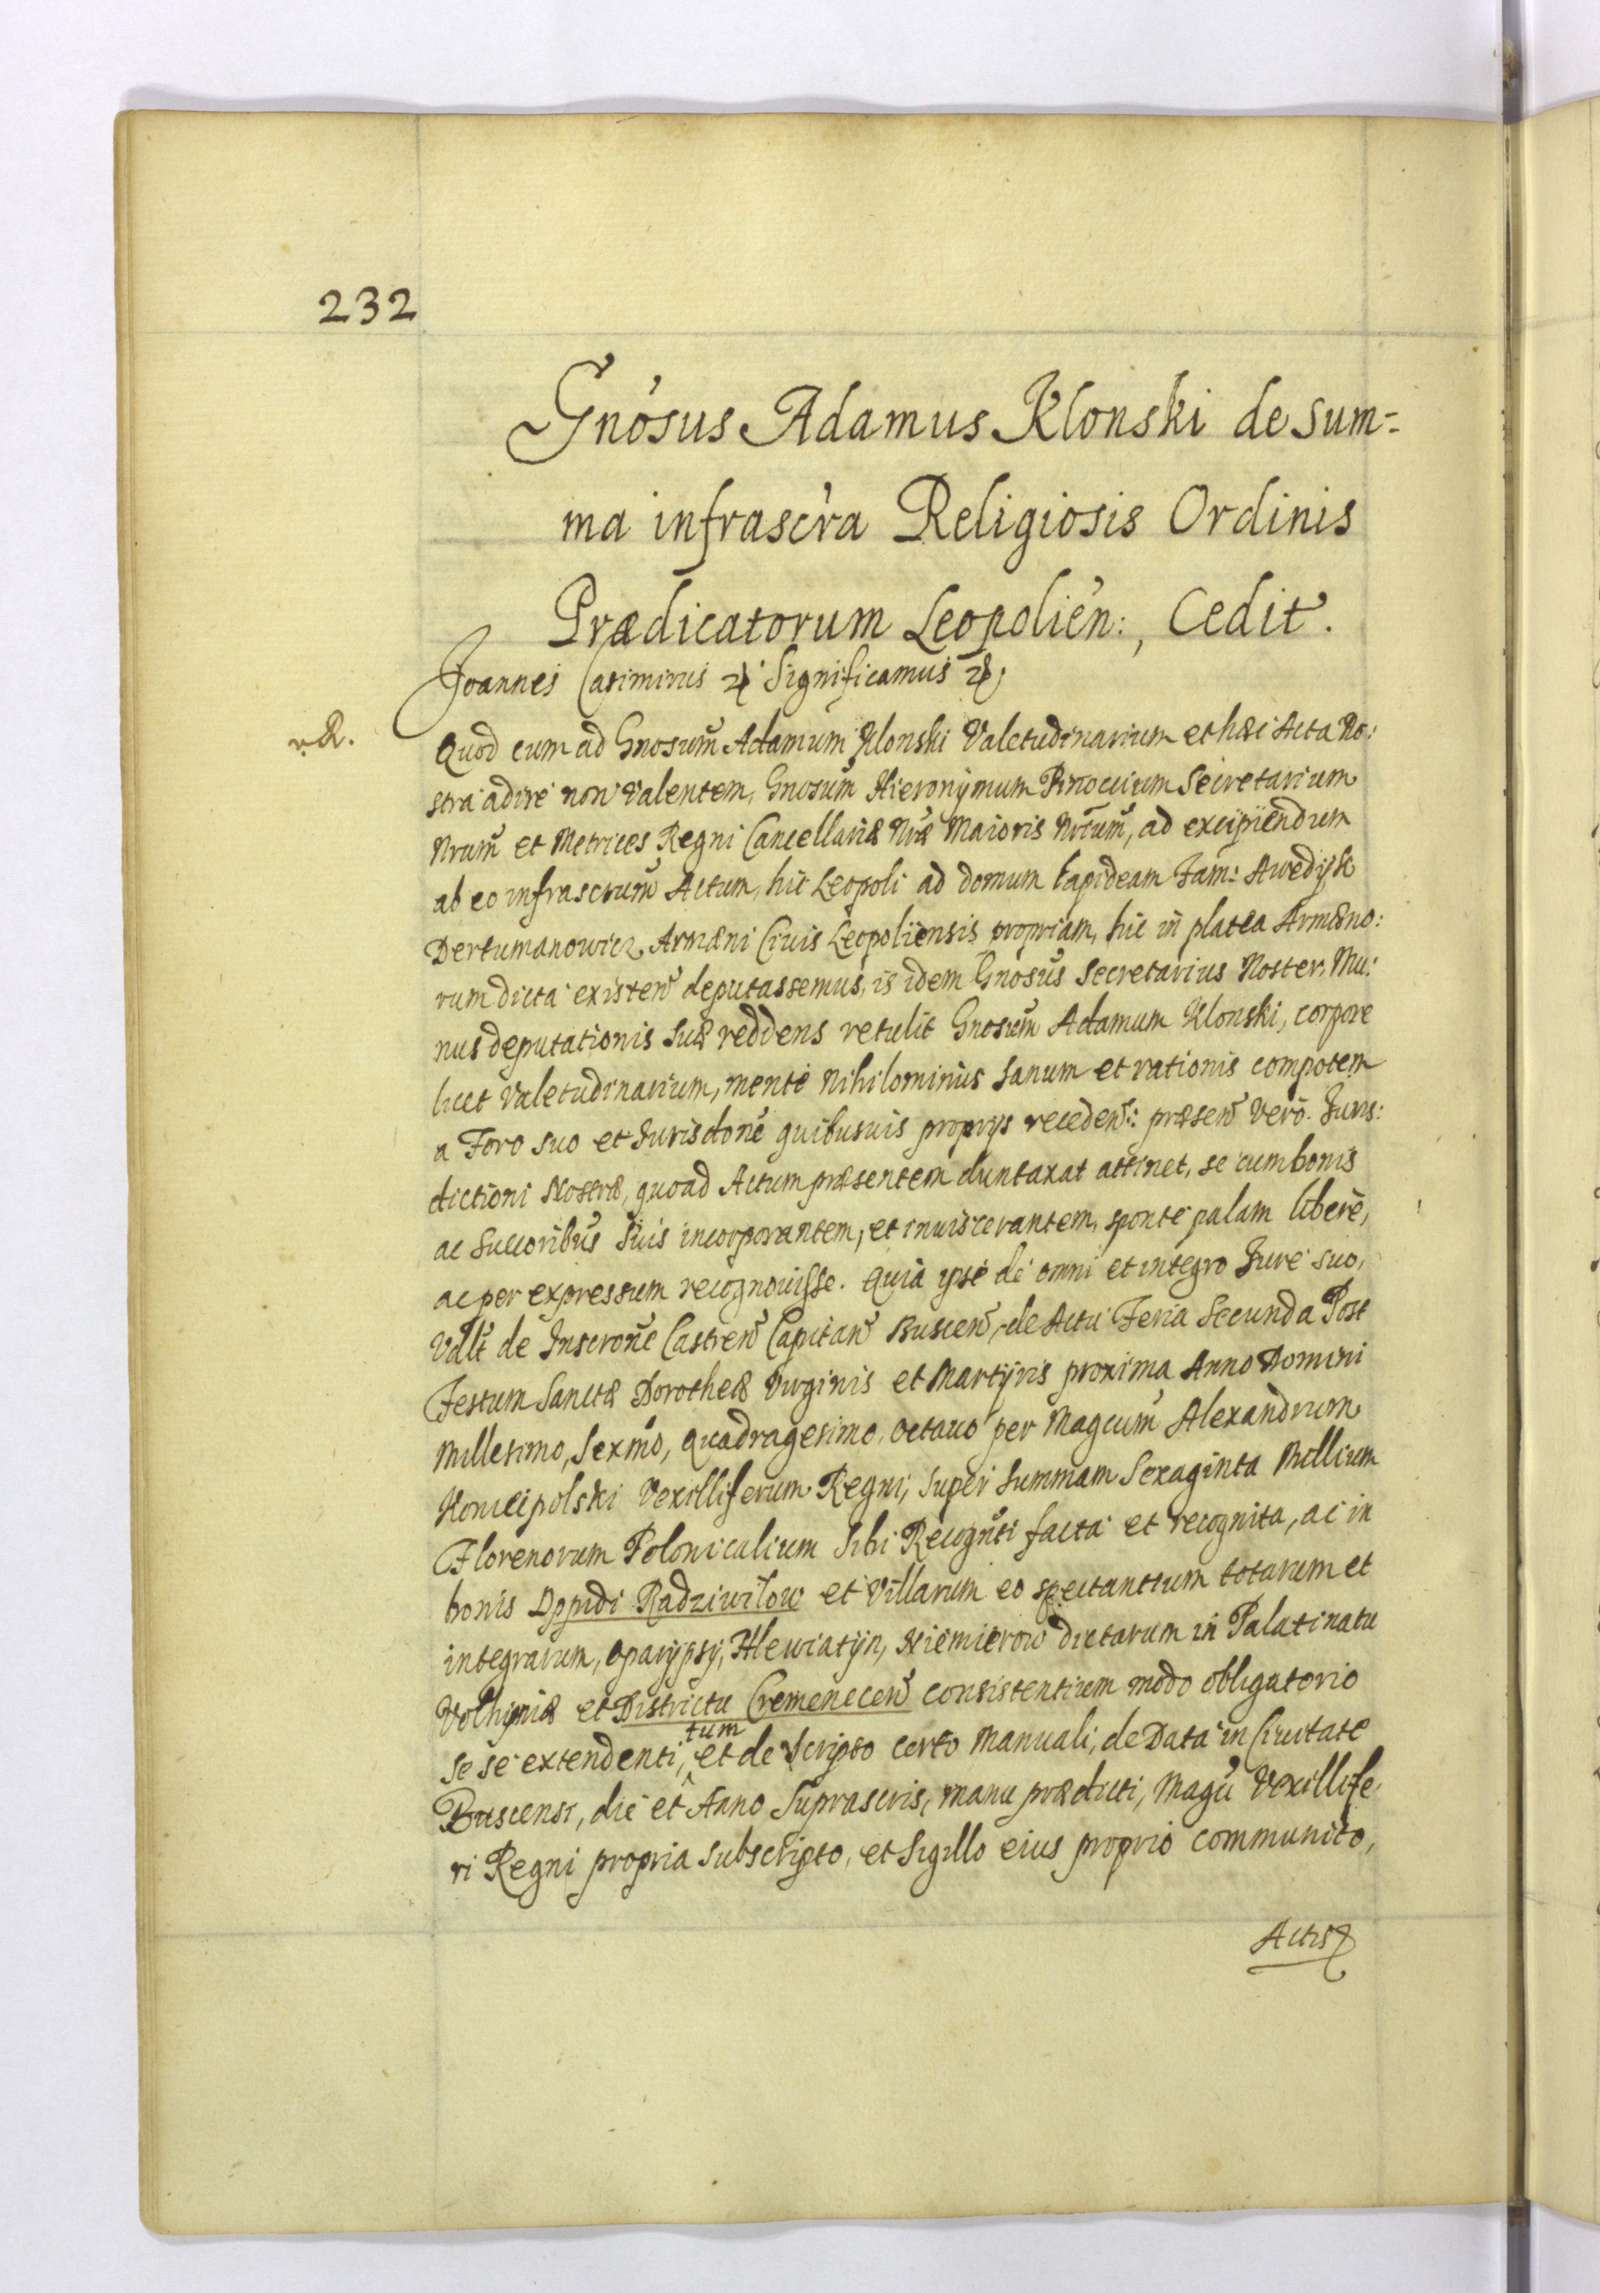 232
Gnósus Adamus Klonski de Sum=
ma infrascra Religiosis Ordinis
Prædicatorum Leopolien:, Cedit.
Joannes Casimirus Significamus
Quod cum ad Gnosum Adamum Klonski Valetudinarium et hæc Acta No:
stra adire non valentem, Gnosum Hieronymum Pinoccium Secretarium
Nrum et Metrices Regni Cancellariæ Nræ Maioris Nrium, ad excipiendum
ab eo infrascrium Actum, hic Leopoli ad domum lapideam Fam: Awedyk
Dertumanowicz Armæni Civis Leopoliensis propriam, hic in platea Armæno:
rum dicta existen deputassemus, is idem Gnosus Secretarius Noster, Mu:
nus deputationis Suæ reddens retulit Gnosum Adamum Klonski, corpore
licet Valetudinarium, mente Nihilominus Sanum et rationis compotem
a Foro suo et Jurisdone quibusuis proprys receden: præsen vero Juris:
dictioni Nostræ, quoad Actum præsentem duntaxat attinet, se cum bonis
ac Succoribus Suis incorporantem, et inuiscerantem, sponte palam libere,
ac per expressum recognouisse. Quia ipse de omni et integro Jure suo,
Vdlt de Inscrone Castren Capitan Buscen, de Actu Feria Secunda Post
Festum Sanctæ Dorotheæ Virginis et Martyris proxima Anno Domini
Millesimo, Sexmo, Quadragesimo, octauo per Magcum Alexandrum
Koniecpolski Vexilliferum Regni, Super Summam Sexaginta Millium
Florenorum Polonicalium Sibi Recognti facta et recognita, ac in
bonis Oppidi Radziwilow et Villarum eo spectantium totarum et
integrarum, Oparypsy, Hlewiatyn, Niemierow dictarum in Palatinatu
Volhyniæ et Districtu Cremenecen consistentium modo obligatorio
se se extendenti, tum et de Scripto certo Manuali, de Data in Ciuitate
Buscensi, die et Anno Suprascris, manu prædicti, Magci Vexillife
ri Regni propria subscripto, et Sigillo eius proprio communito,
Actis